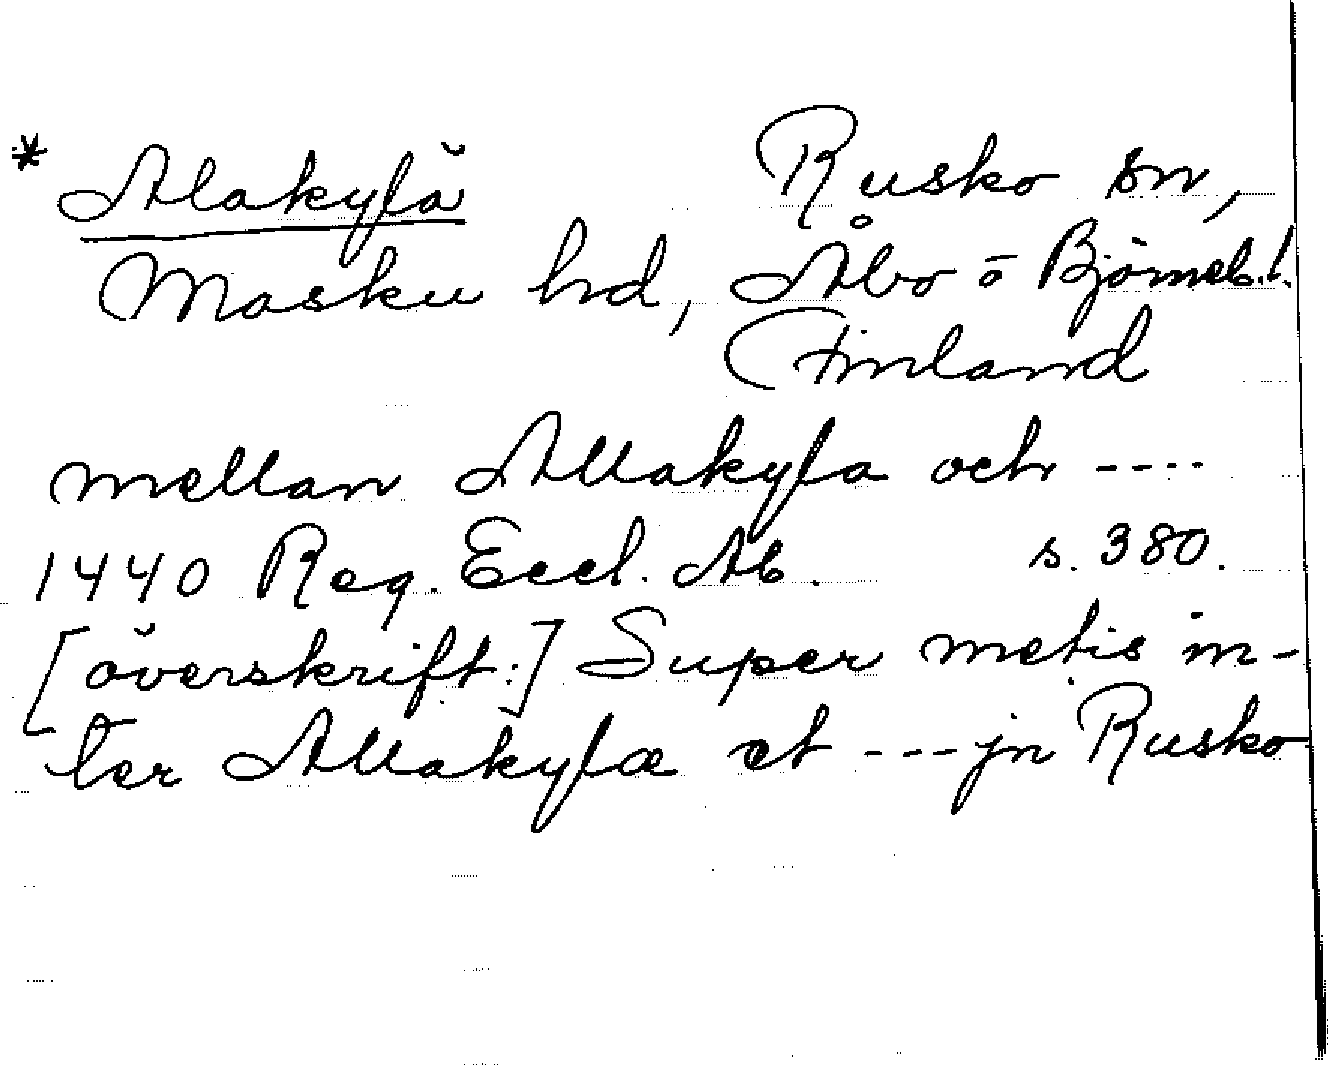 * Alakylä Rusko sn,
Masku hd, Åbo ö Björneb.l.
Finland
mellan Allakyla och ----
1440 Reg. Eccl. Ab. s. 380.
[överskrift:] Super metis in-
ter Allakylæ et --- jn Rusko